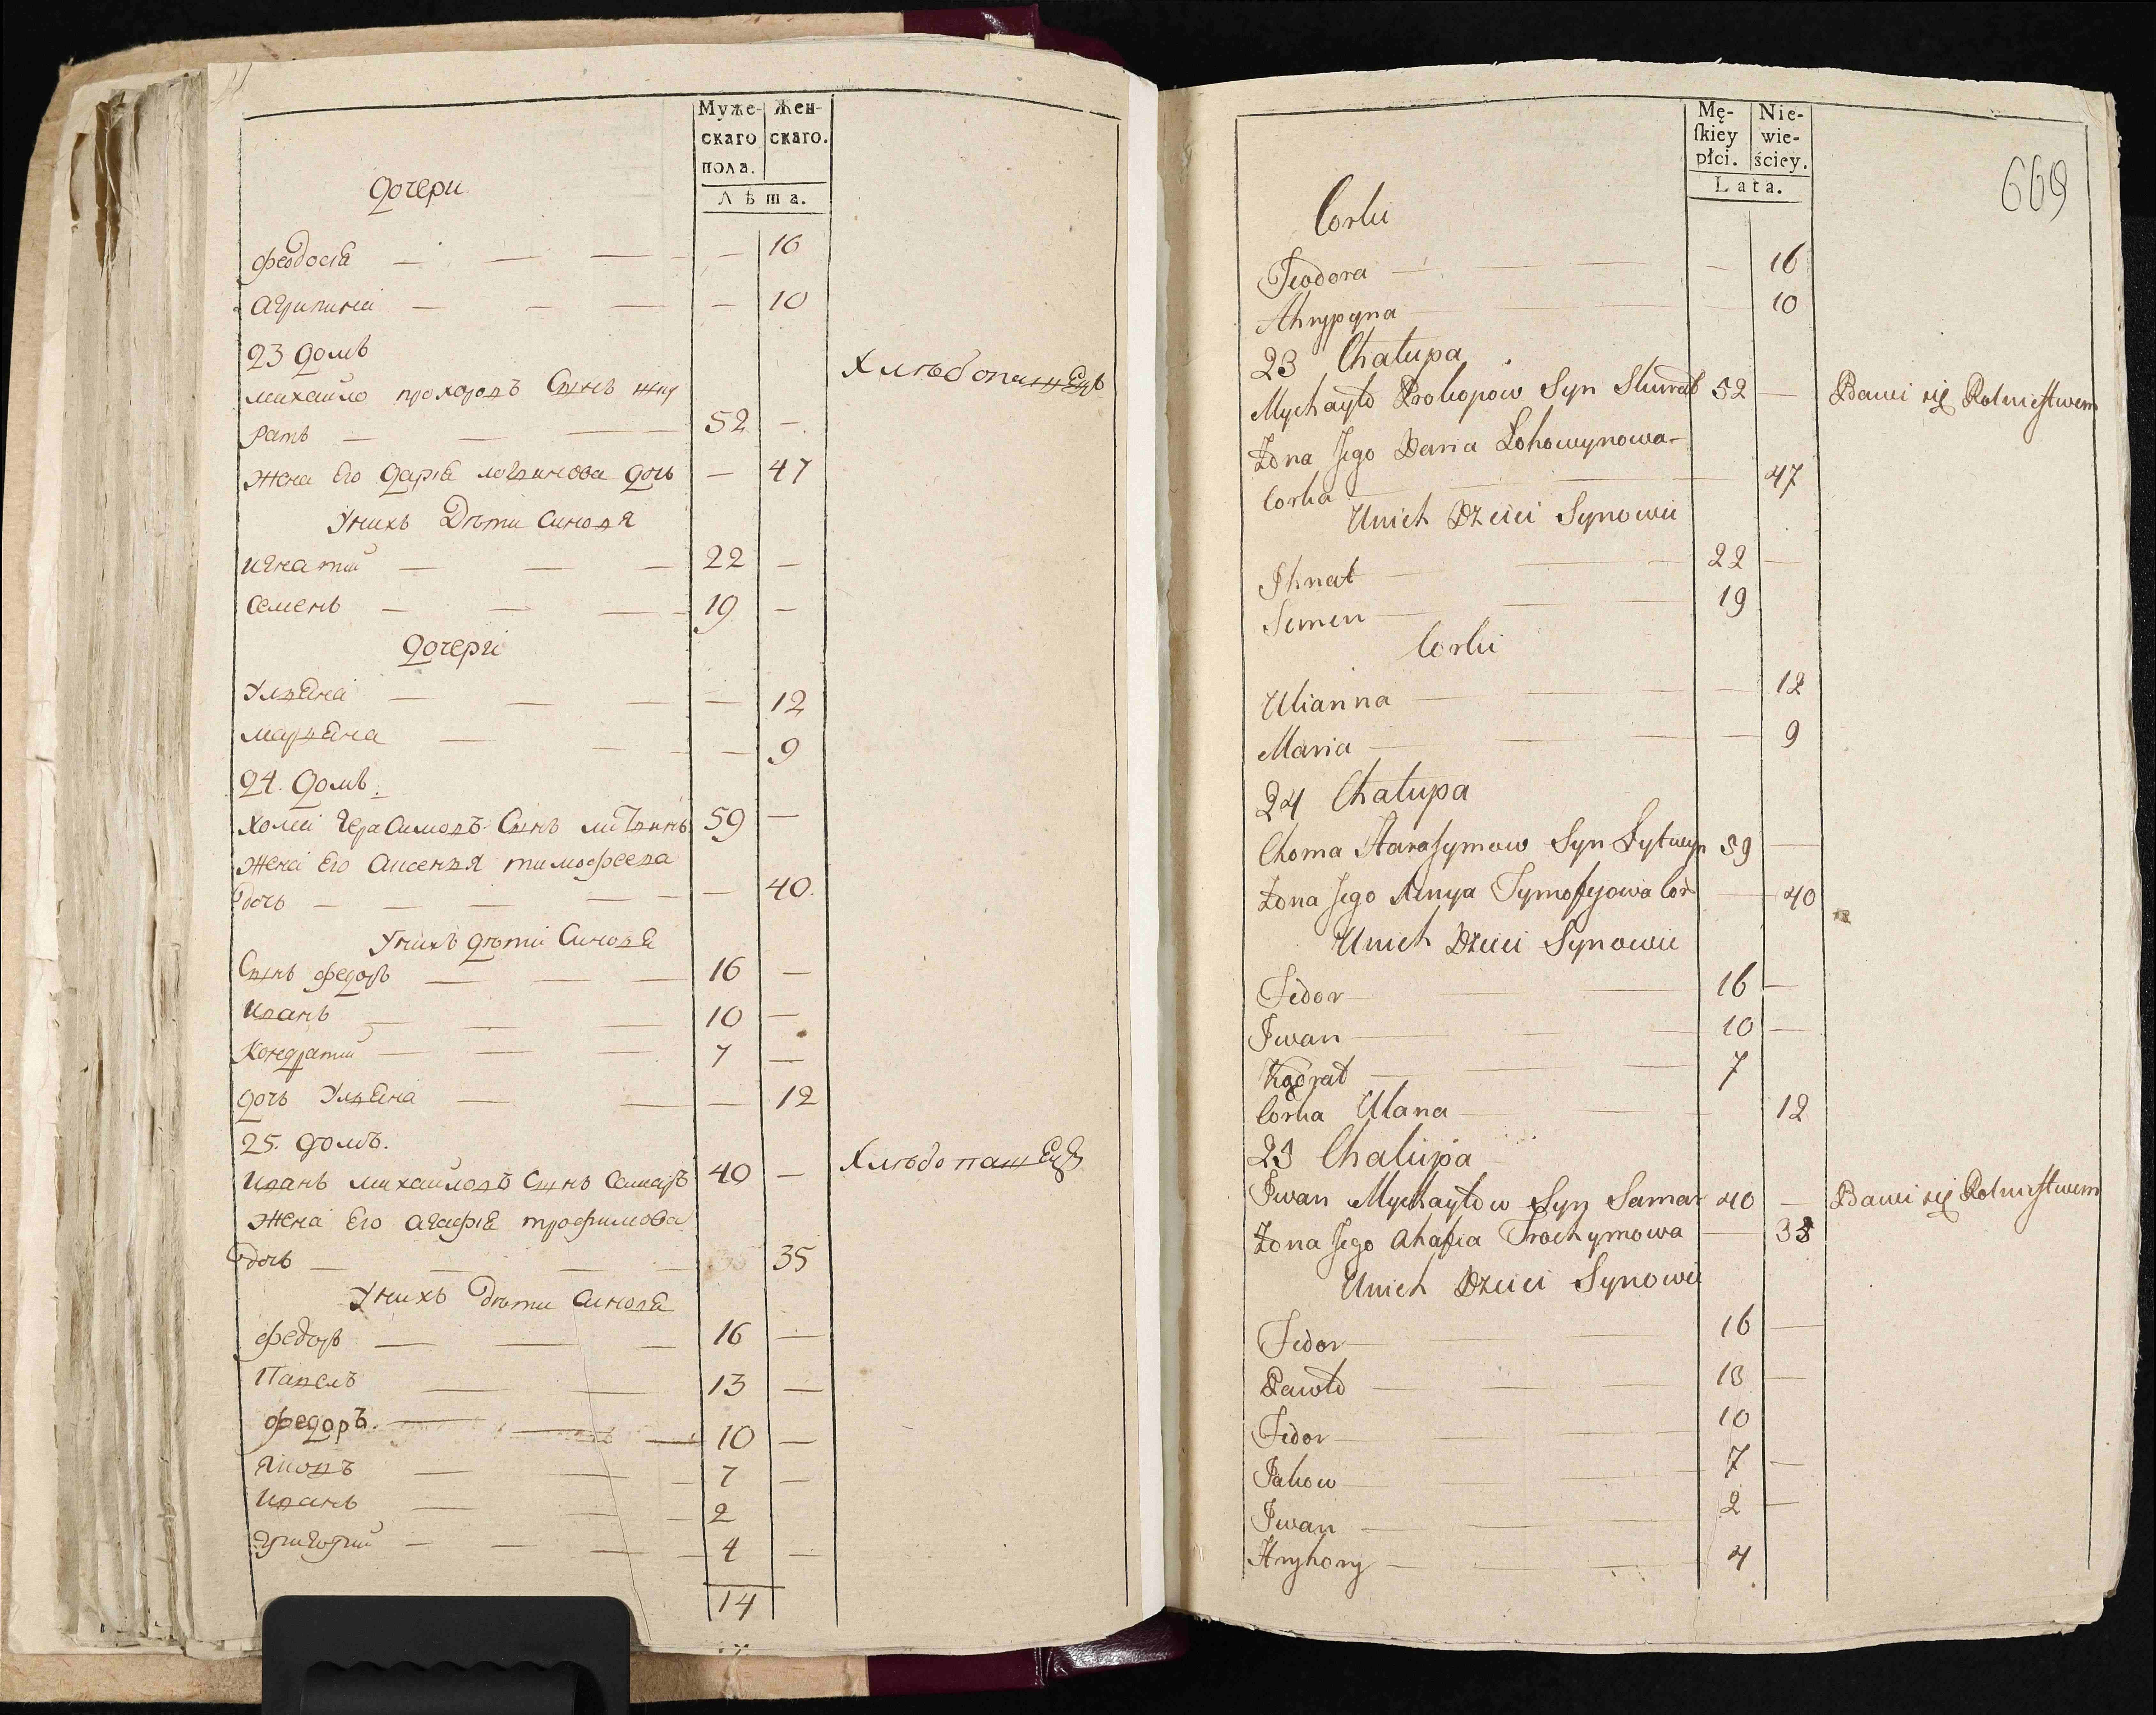 Муже-
скаго
пола.
Жен-
скаго.
Лѣта.
дочери
феодосіа — 16
агрипина — 10
23 домъ
михайло прокоповъ Сынъ шку
ратъ — 52 — Хлѣбопашецъ
жена Его дарія логвинова дочь — 47
Унихъ Дѣти Синовя
игнатий — 22 —
Семенъ — 19 —
дочери
Улянна — 12
маряна — 9
24. домъ.
хома герасимовъ Сынъ литвинъ 59 —
жена Его аксенья тимофеева
дочь — 40.
Унихъ дѣти Синовя
Сынъ федоръ — 16 —
иванъ — 10 —
Кондратий — 7 —
дочь Уляна — 12
25. домъ.
иванъ михайловъ Сынъ Самаръ 40 — Хлѣбопашецъ
жена Его агафія трофимова
дочь — 35
Унихъ дѣти Синовя
федоръ — 16 —
Павелъ — 13 —
федоръ. — 10 —
яковъ — 7 —
иванъ — 2
григорий — 4 —
14
Mę-
ſkiey
płci.
Nie-
wie-
ściey.
Lata.
669
Corki
Teodora — 16
Ahrypyna — 10
23 Chałupa
Mychayło Prokopow Syn Skurat 52 — Bawi się Rolnictwem
Żona Jego Daria Lohowynowa
Corka — 47
Unich Dzieci Synowie
Ihnat — 22 —
Semen — 19
Corki
Ulianna — 12
Maria — 9
24 Chałupa
Choma Harasymow Syn Lytwyn 59 —
Żona Jego Axenya Tymofyjowa Cor — 40
Unich Dzieci Synowie
Fedor — 16 —
Iwan — 10 —
Kądrat — 7
Corka Ulana — 12
25 Chałupa
Iwan Mychayłow Syn Samar 40 — Bawi się Rolnictwem
Żona Jego Ahafia Trochymowa — 35
Unich Dzieci Synowie
Fedor — 16 —
Pawło — 13 —
Fedor — 10
Jakow — 7 —
Iwan — 2 —
Hryhory — 4